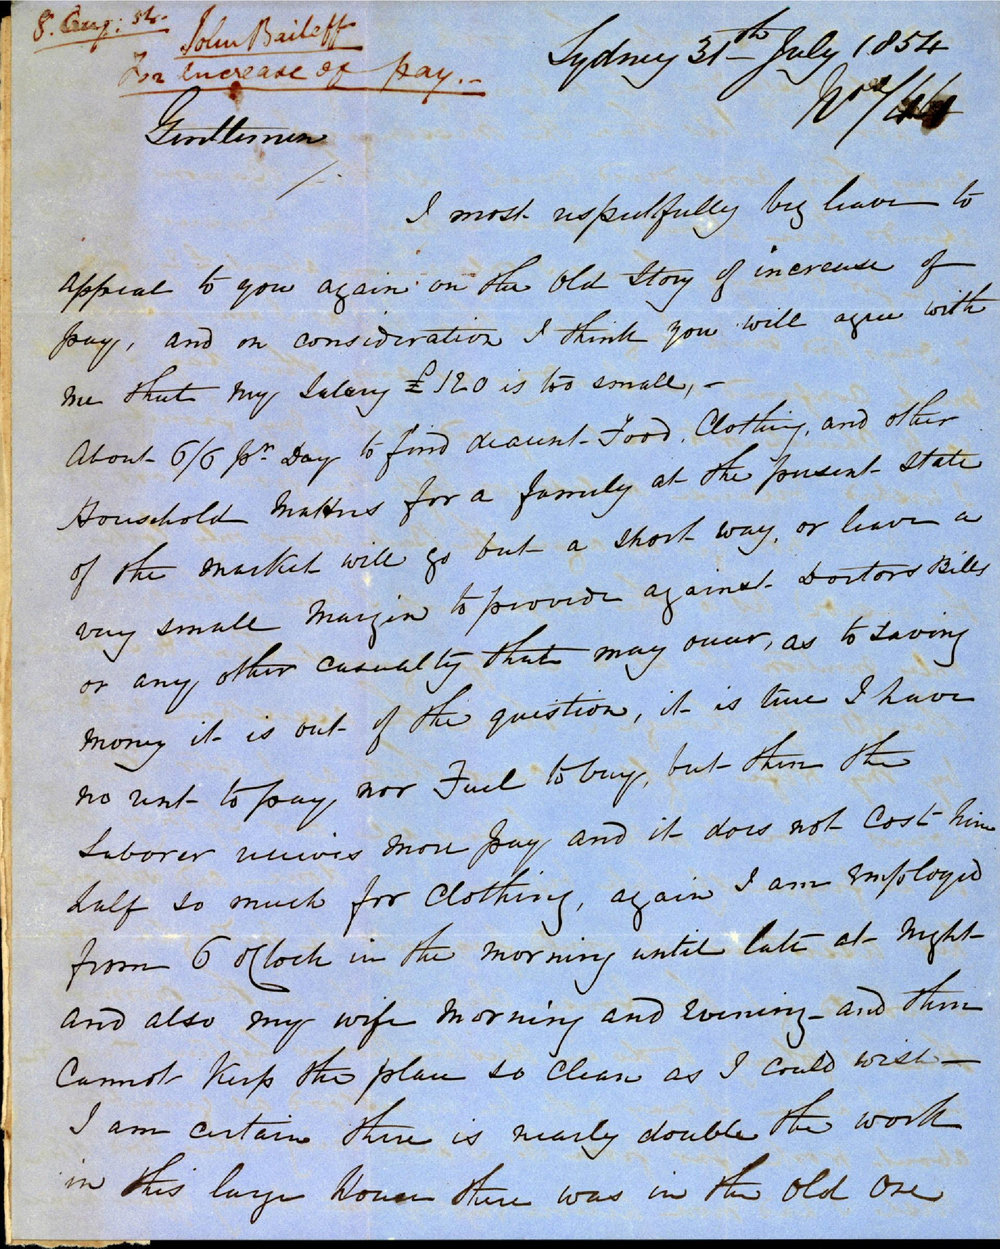 8. Aug: 54.
John Baileff
For increase of pay.-
Sydney 31th July 1854
Gentlemen
I most respectfully beg leave to
appeal to you again on the Old Story of increase of
pay, and on consideration I think you will agree with
me that my Salary £120 is too small, -
About 6/6 pr Day to find deacent Food, Clothing, and other
Household Matters for a family at the present state
of the market will go but a short way, or leave a
very small Margin to provide against Doctors Bills
or any other casualty that may occur, as to Saving
money it is out of the question, it is true I have
no rent to pay, nor Fuel to buy, but then the
Laborer receives more pay and it does not cost him
half so much for Clothing, again I am employed
from 6 oClock in the morning until late at Night
and also my wife Morning and Evening - and then
Cannot keep the place so clean as I could wish -
I am certain there is nearly double the work
in this large House there was in the old One